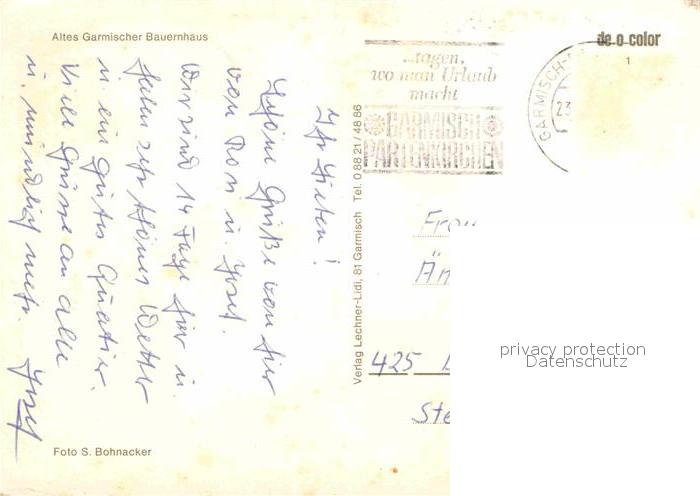 Altes Garmischer Bauernhaus
de o color
1
...tagen,
wo man Urlaub
macht
GARMISCH
PARTENKIRCHEN
GARMISCH-
23
Ihr Lieben!
Schöne Grüße von hier
von Rosi u. Josef.
Wir sind 14 Tage hier u.
haben sehr schönes Wetter
u. ein gutes Quartier.
Viele Grüsse an alle
u. mündlich mehr. Josef
Verlag Lechner-Lidi, 81 Garmisch Tel. 0 88 21 / 48 86
Frau
Än
425
Ste
privacy protection
Datenschutz
Foto S. Bohnacker